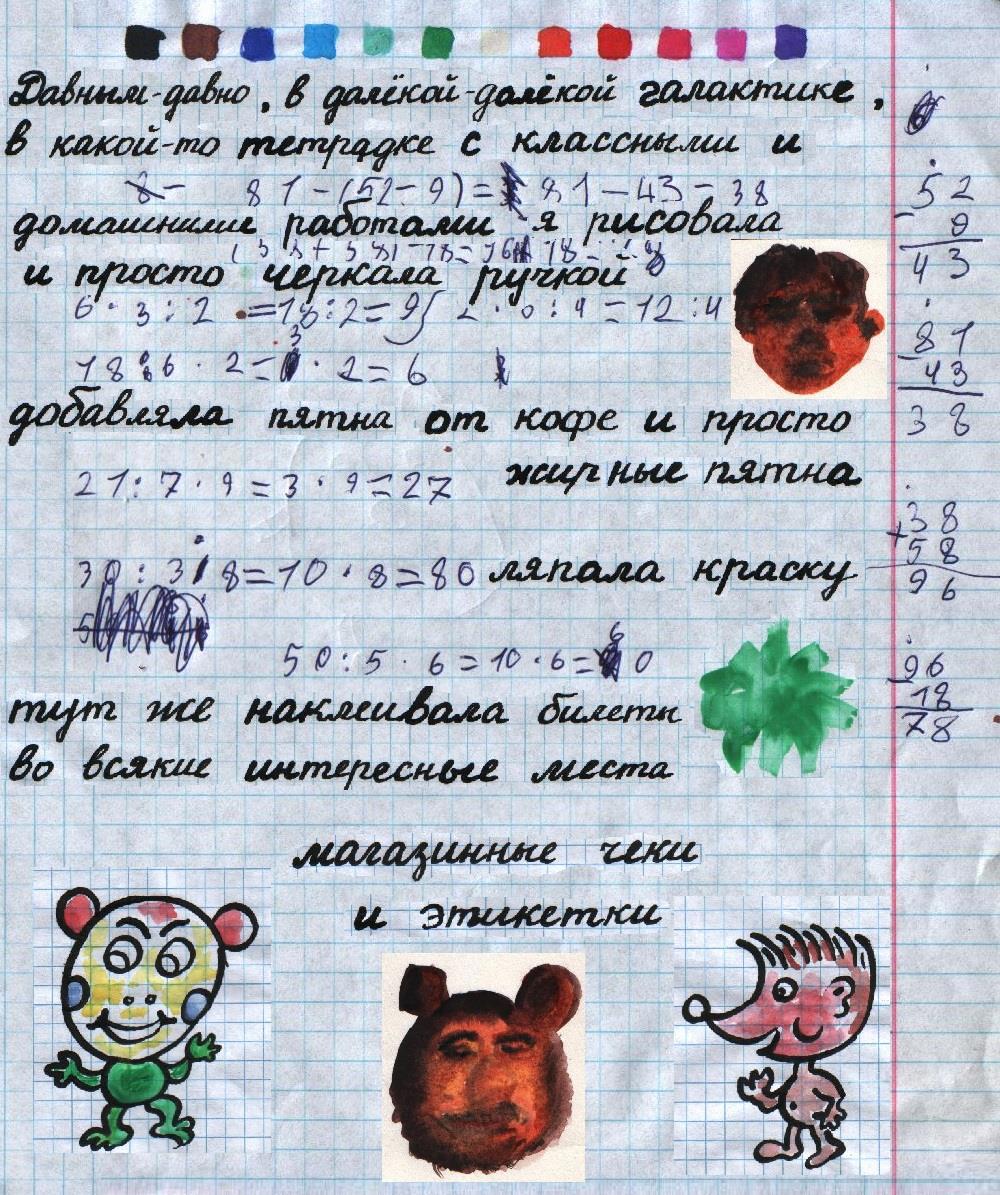 Давным-давно, в далёкой-далёкой галактике,
в какой-то тетрадке с классными и
81-(52-9)= 81-43=38
домашними работами я рисовала
и просто черкала ручкой
6·3:2=18:2=9
=12:4
18:6·2=3·2=6
добавляла пятна от кофе и просто
21:7·9=3·9=27
жирные пятна
30:3·8=10·8=80
ляпала краску
50:5·6=10·6=60
тут же наклеивала билеты
во всякие интересные места
магазинные чеки
и этикетки
52
- 9
43
81
- 43
38
38
+ 58
96
96
- 18
78